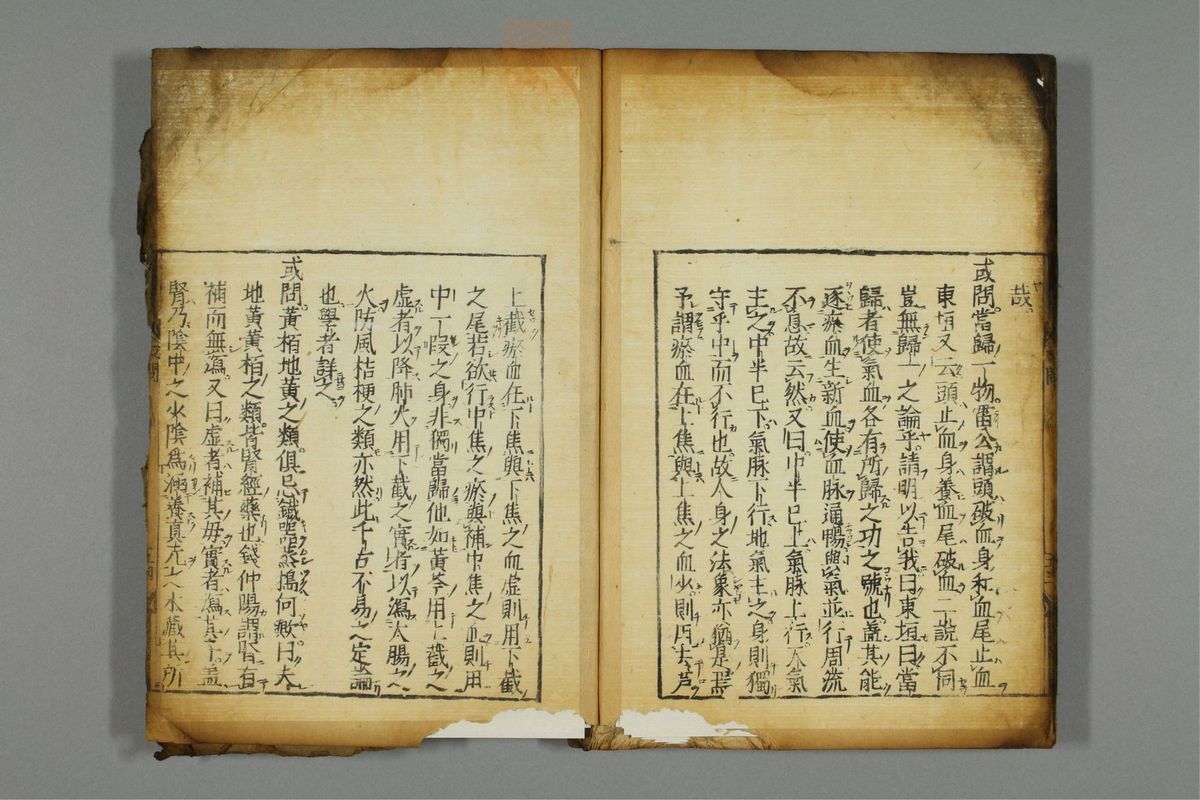 哉
或問當歸一物雷公謂頭破血身和血尾止血
東垣又云頭止血身養血尾破血二説不同
豈無歸一之論乎請明以告我曰東垣曰當
歸者使氣血各有所歸之功之號也蓋其能
逐瘀血生新血使血脉通暢與氣並行周流
不息故云然又曰中半已上氣脉上行天氣
主之中半已下氣脉下行地氣主之身則獨
守乎中而不行也故人身之法象亦猶是焉
予謂瘀血在上焦與上焦之血少則用去芦
上截瘀血在下焦與下焦之血虚則用下截
之尾若欲行中焦之瘀與補中焦之血則用
中一段之身非獨當歸他如黄芩用上截之
虚者以降肺火用下截之實者以瀉大腸之
火防風桔梗之類亦然此千古不易之定論
也學者詳之
或問黄栢地黄之類俱忌鐵器蒸搗何歟曰大
地黄黄栢之類皆腎經藥也錢仲陽謂腎有
補而無瀉又曰虚者補其母實者瀉其子蓋
腎乃陰中之水陰為涵養真元之水藏其所